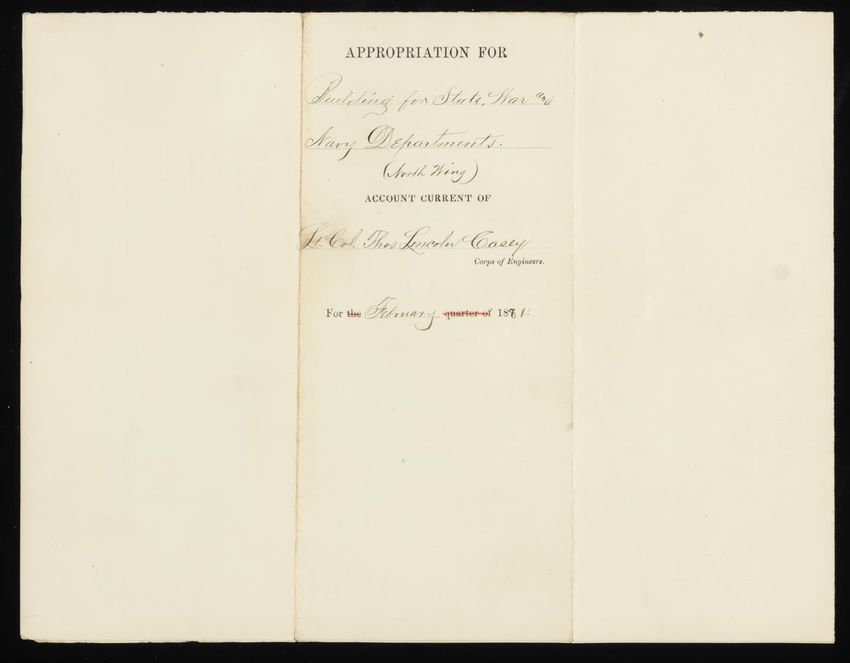 APPROPRIATION FOR
Building for State, War and
Navy Departments.
(North Wing)
ACCOUNT CURRENT OF
Lt. Col. Thos Lincoln Casey
Corps of Engineers.
For the February quarter of 1881.